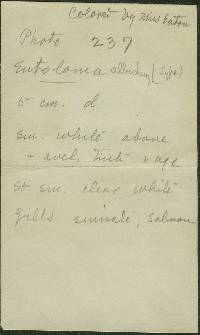 Colored by Miss Eaton
Photo 237
Entoloma albidum (Type)
5 cm. d
sm. white above
+ avel. tint + age
St sm. clear white
Gills sinuate, salmon